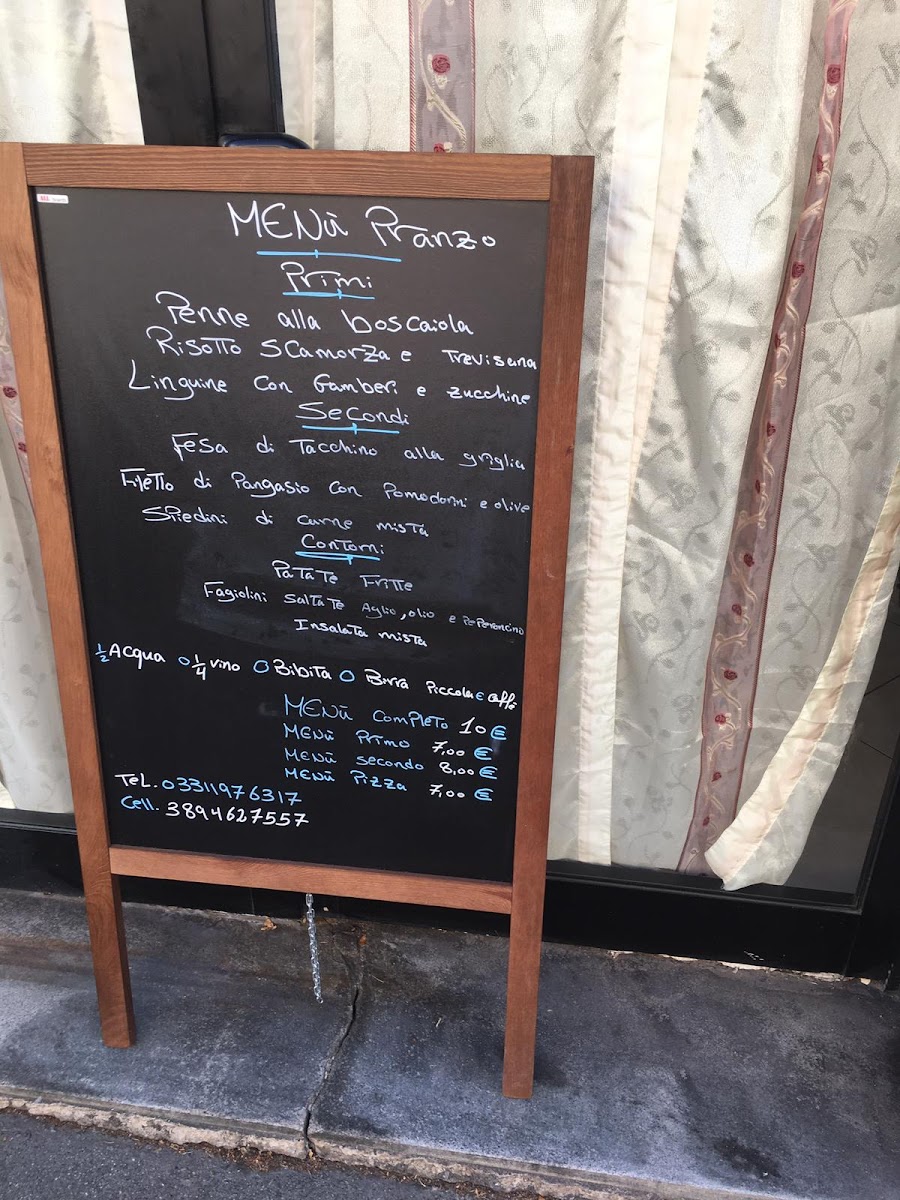 MENÙ Pranzo
Primi
Penne alla boscaiola
Risotto scamorza e Trevisana
Linguine con Gamberi e zucchine
Secondi
Fesa di Tacchino alla griglia
Filetto di Pangasio con Pomodorini e olive
Spiedini di carne mista
Contorni
Patate Fritte
Fagiolini saltate Aglio, olio e Peperoncino
Insalata mista
½ Acqua o ¼ vino O Bibita O Birra Piccola e caffè
MENÙ completo 10 €
MENÙ Primo 7,00 €
MENÙ secondo 8,00 €
MENÙ Pizza 7,00 €
Tel. 03311976317
Cell. 3894627557